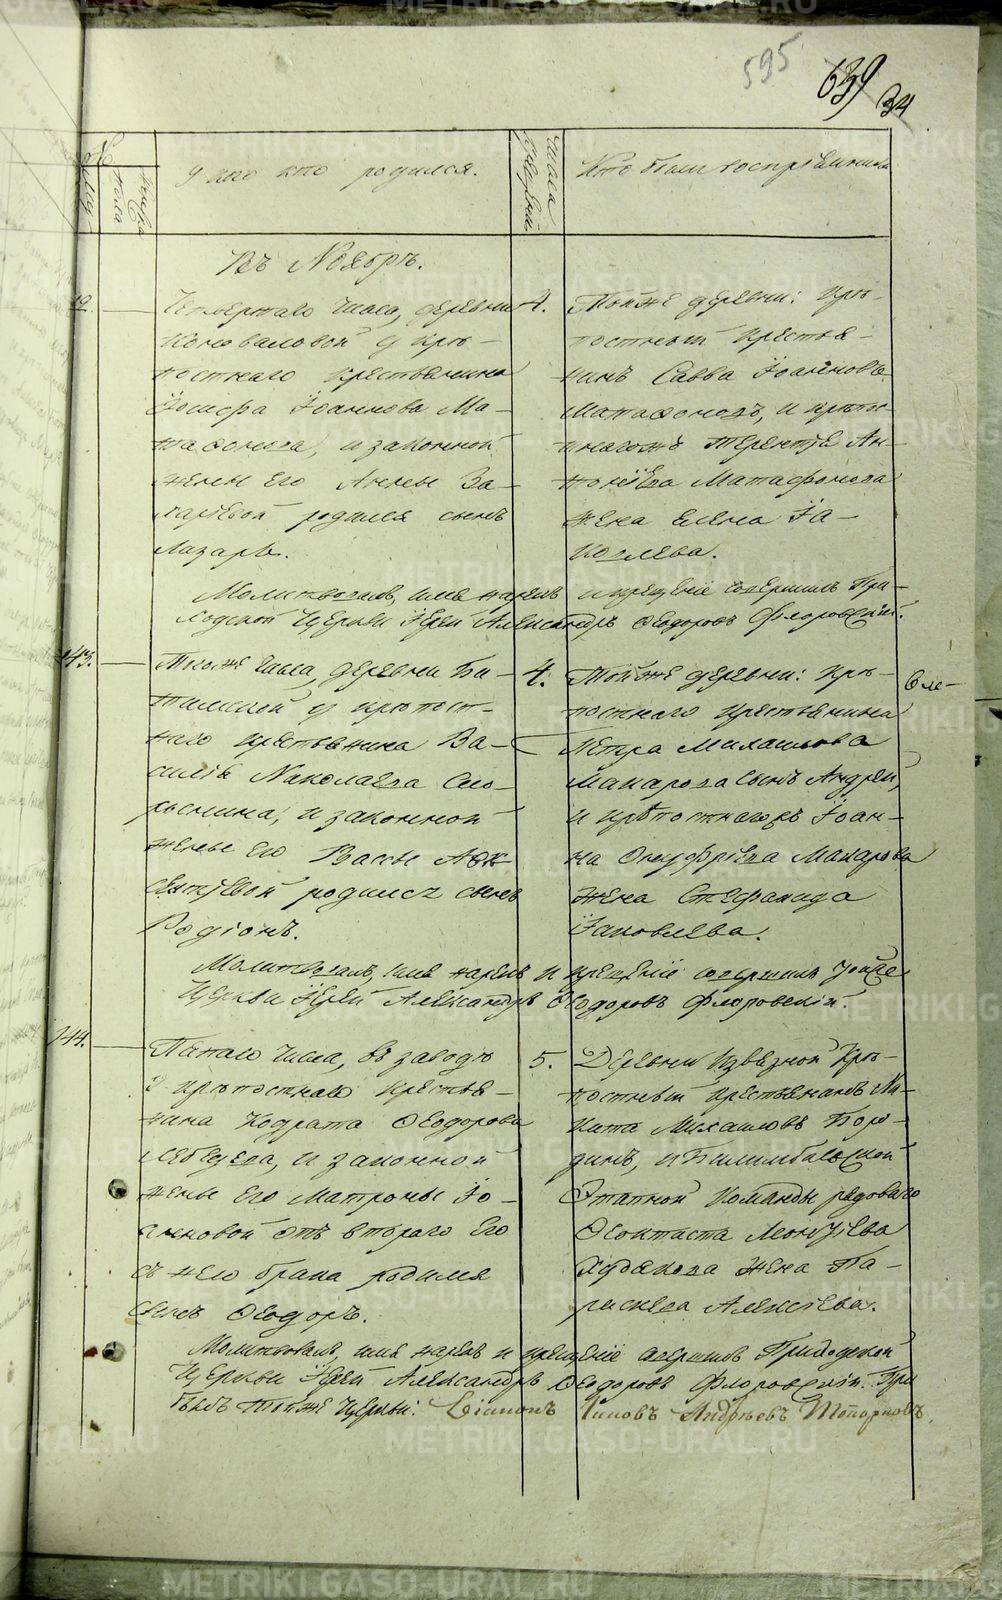 595
639
34
У кого кто родился.
числа крещенiй
Кто были воспрiемники
Въ Ноябрѣ.
Четвертаго числа, деревни
Коноваловой у крѣ-
постнаго крестьянина
Iосифа Iоаннова Ма-
тафонова, и законной
жены его Анны За-
харьевой родился сынъ
Лазарь.
4.
Тойже деревни: крѣ-
постный крестья-
нинъ Савва Iоанновъ
Матафоновъ, и крѣпос-
тнагожъ Терентiя Ан-
тонiева Матафонова
жена Елена Iа-
ковлева.
Молитвовалъ, имя нарекъ и крещенiе совершилъ При-
ходской Церкви Iерей Александръ Ѳеодоровъ Флоровскiй.
243.
Тогоже числа, деревни Би-
тимской у крѣпост-
наго крестьянина Ва-
силiя Николаева
и законной
жены его Вассы
родился сынъ
Родiонъ.
4.
Тойже деревни: крѣ-
постнаго крестьянина
Петра Михаилова
Макарова сынъ Андрей,
и крѣпостнагожъ Iоан-
на Онуфрiева Макарова
жена Стефанида
Iаковлева.
Молитвовалъ, имя нарекъ и крещенiе совершилъ тойже
Церкви Iерей Александръ Ѳеодоровъ Флоровскiй.
244.
Пятаго числа, въ заводѣ
у крѣпостнаго крестья-
нина Кодрата Ѳеодорова
и законной
жены его Матроны Iо-
анновой отъ втораго его
съ нею брака родился
сынъ Ѳеодоръ.
5.
Деревни Извѣзной крѣ-
постный крестьянинъ Ни-
кита Михаиловъ Боро-
динъ, и Билимбаевской
Этапной Команды рядоваго
Ѳеоктиста
Худякова жена Па-
раскева Алексѣева.
Молитвовалъ, имя нарекъ и крещенiе совершилъ Приходской
Церкви Iерей Александръ Ѳеодоровъ Флоровскiй. При
былъ тойже Церкви: Андрѣевъ Топорковъ.
METRIKI.GASO-URAL.RU